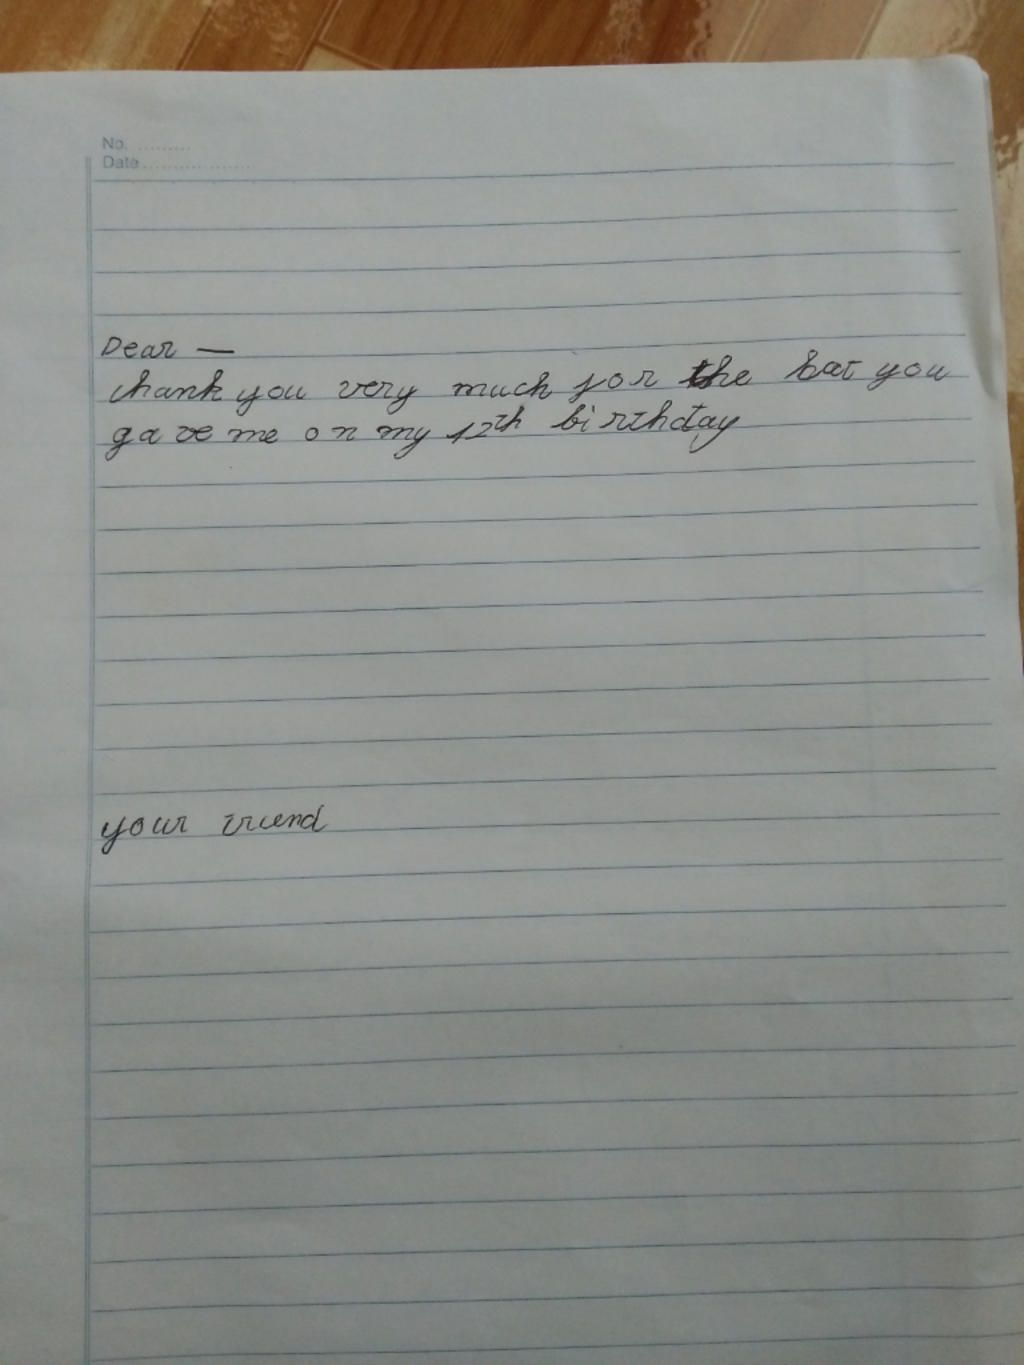 No. ..........
Date ...................
Dear —
thank you very much for the bat you
gave me on my 12th birthday
your friend